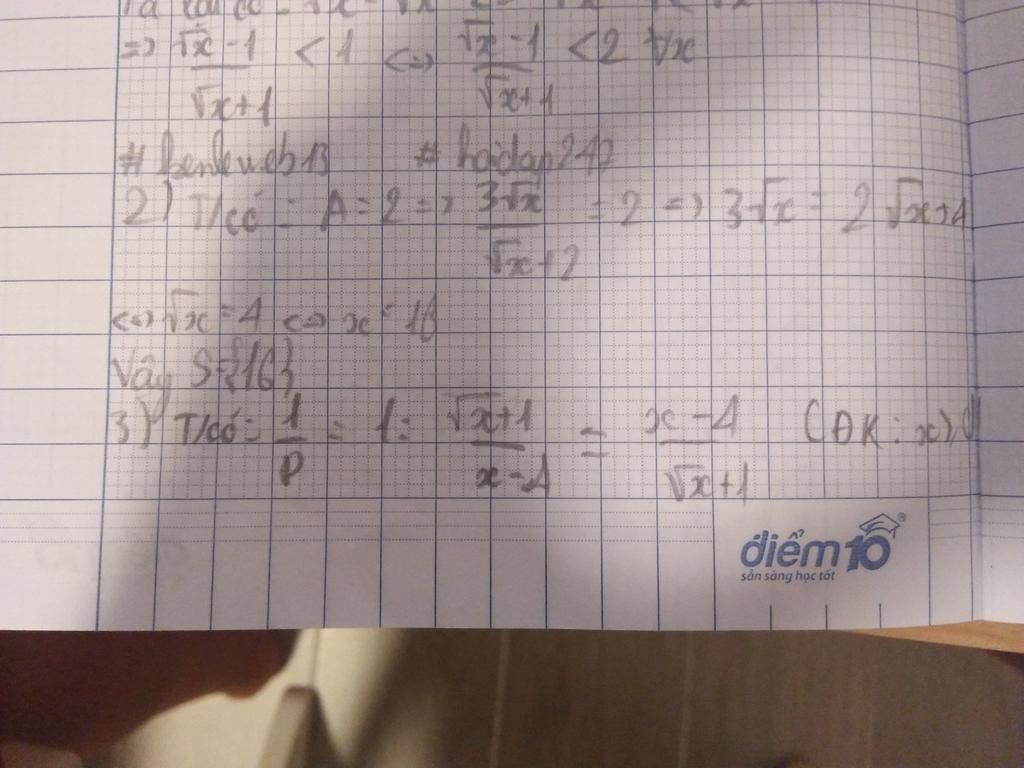 => √x - 1 / √x + 1 < 1 <=> √x - 1 / √x + 1 < 2 ∀x
# benleweb13 # hoidap247
2) T/có: A = 2 => 3√x / √x + 2 = 2 => 3√x = 2√x + 4
<=> √x = 4 <=> x = 16
Vậy S = {16}
3) T/có: 1 / P = 1 : √x + 1 / x - 1 = x - 1 / √x + 1 (ĐK: x ≥ 0
điểm10
sẵn sàng học tốt